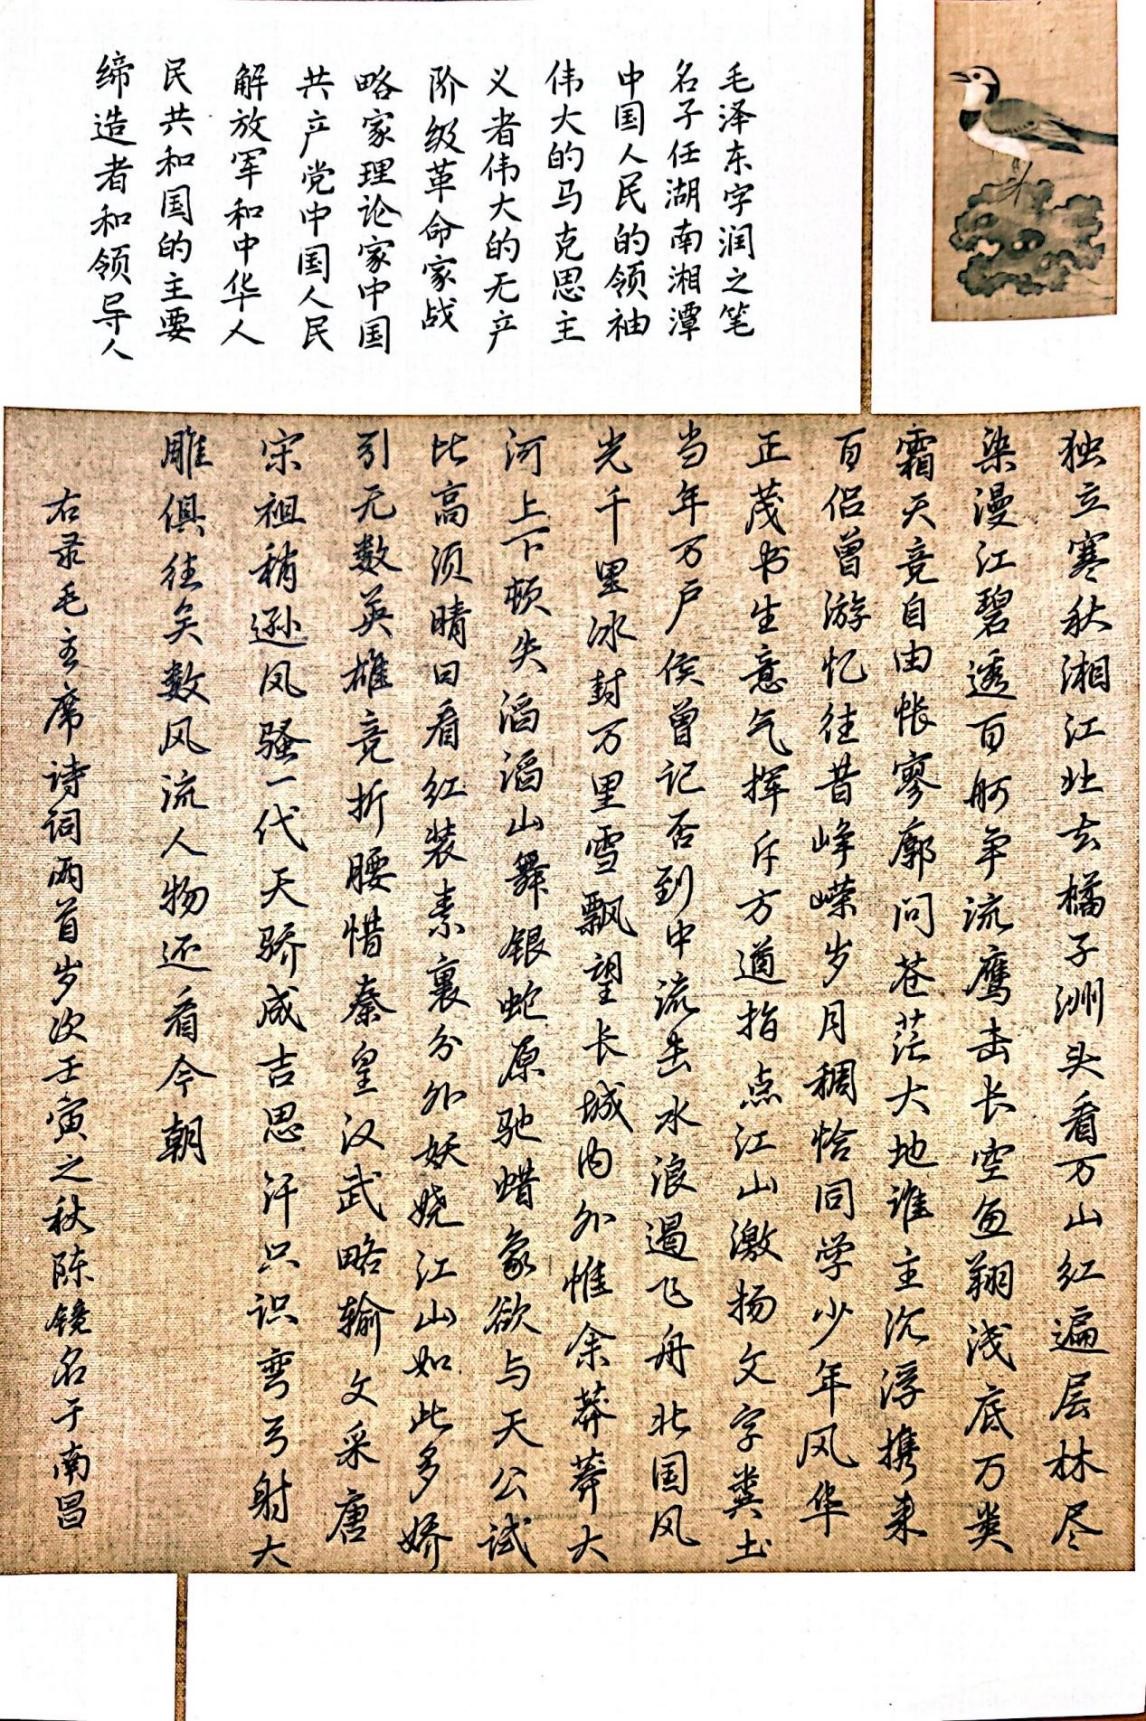 毛泽东字润之笔
名子任湖南湘潭
中国人民的领袖
伟大的马克思主
义者伟大的无产
阶级革命家战
略家理论家中国
共产党中国人民
解放军和中华人
民共和国的主要
缔造者和领导人
独立寒秋湘江北去橘子洲头看万山红遍层林尽
染漫江碧透百舸争流鹰击长空鱼翔浅底万类
霜天竞自由怅寥廓问苍茫大地谁主沉浮携来
百侣曾游忆往昔峥嵘岁月稠恰同学少年风华
正茂书生意气挥斥方遒指点江山激扬文字粪土
当年万户侯曾记否到中流击水浪遏飞舟北国风
光千里冰封万里雪飘望长城内外惟余莽莽大
河上下顿失滔滔山舞银蛇原驰蜡象欲与天公试
比高须晴日看红装素裹分外妖娆江山如此多娇
引无数英雄竞折腰惜秦皇汉武略输文采唐
宋祖稍逊风骚一代天骄成吉思汗只识弯弓射大
雕俱往矣数风流人物还看今朝
右录毛主席诗词两首岁次壬寅之秋陈镜名于南昌